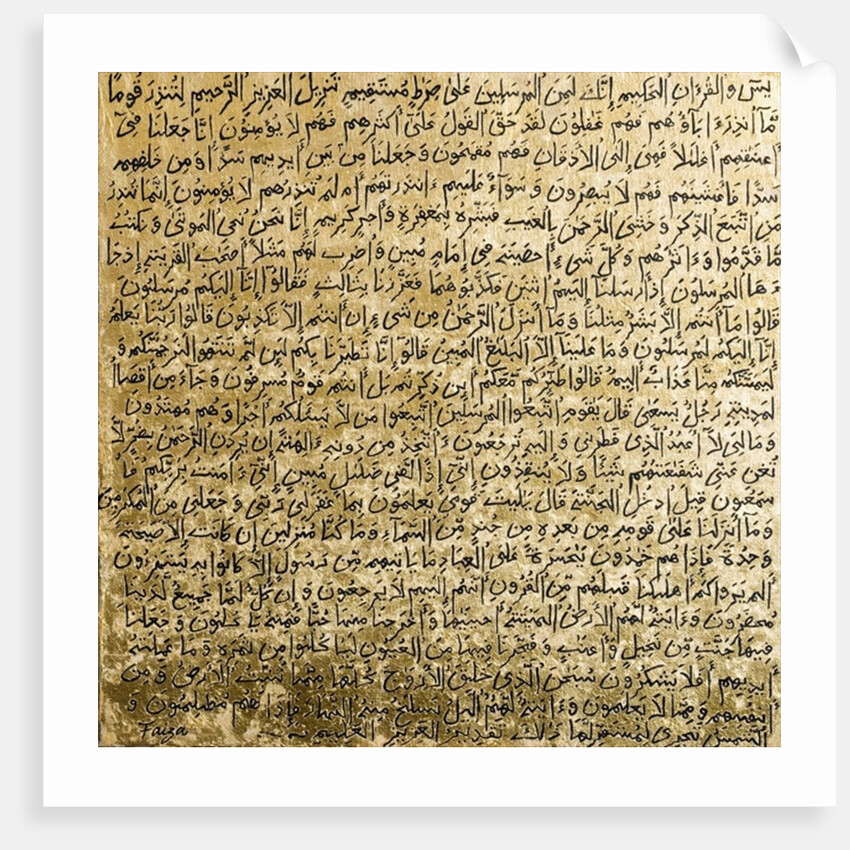 يس وَالقُرءَانِ الحَكيمِ إِنَّكَ لَمِنَ المُرسَلينَ عَلىٰ صِرٰطٍ مُستَقيمٍ تَنزيلَ العَزيزِ الرَّحيمِ لِتُنذِرَ قَومًا
مَّا أُنذِرَ ءَابَاؤُهُم فَهُم غٰفِلونَ لَقَد حَقَّ القَولُ عَلىٰ أَكثَرِهِم فَهُم لَا يُؤمِنونَ إِنَّا جَعَلنَا فى
أَعنٰقِهِم أَغلٰلًا فَهِىَ إِلَى الأَذقَانِ فَهُم مُقمَحونَ وَجَعَلنَا مِن بَينِ أَيديهِم سَدًّا وَمِن خَلفِهِم
سَدًّا فَأَغشَينٰهُم فَهُم لَا يُبصِرونَ وَسَوَاءٌ عَلَيهِم ءَأَنذَرتَهُم أَم لَم تُنذِرهُم لَا يُؤمِنونَ إِنَّمَا تُنذِرُ
مَنِ اتَّبَعَ الذِّكرَ وَخَشِىَ الرَّحمٰنَ بِالغَيبِ فَبَشِّرهُ بِمَغفِرَةٍ وَأَجرٍ كَريمٍ إِنَّا نَحنُ نُحىِ المَوتىٰ وَنَكتُبُ
مَا قَدَّموا وَءَاثٰرَهُم وَكُلَّ شَىءٍ أَحصَينٰهُ فى إِمَامٍ مُبينٍ وَاضرِب لَهُم مَثَلًا أَصحٰبَ القَريَةِ إِذ جَا
ءَهَا المُرسَلونَ إِذ أَرسَلنَا إِلَيهِمُ اثنَينِ فَكَذَّبوهُمَا فَعَزَّزنَا بِثَالِثٍ فَقَالوا إِنَّا إِلَيكُم مُرسَلونَ
قَالوا مَا أَنتُم إِلَّا بَشَرٌ مِثلُنَا وَمَا أَنزَلَ الرَّحمٰنُ مِن شَىءٍ إِن أَنتُم إِلَّا تَكذِبونَ قَالوا رَبُّنَا يَعلَمُ
إِنَّا إِلَيكُم لَمُرسَلونَ وَمَا عَلَينَا إِلَّا البَلٰغُ المُبينُ قَالوا إِنَّا تَطَيَّرنَا بِكُم لَئِن لَم تَنتَهوا لَنَرجُمَنَّكُم وَ
لَيَمَسَّنَّكُم مِنَّا عَذَابٌ أَليمٌ قَالوا طٰئِرُكُم مَعَكُم أَئِن ذُكِّرتُم بَل أَنتُم قَومٌ مُسرِفونَ وَجَاءَ مِن أَقصَا ا
لمَدينَةِ رَجُلٌ يَسعىٰ قَالَ يٰقَومِ اتَّبِعوا المُرسَلينَ اتَّبِعوا مَن لَا يَسـَٔلُكُم أَجرًا وَهُم مُهتَدونَ
وَمَا لِىَ لَا أَعبُدُ الَّذى فَطَرَنى وَإِلَيهِ تُرجَعونَ ءَأَتَّخِذُ مِن دونِهِ ءَالِهَةً إِن يُرِدنِ الرَّحمٰنُ بِضُرٍّ لَا
تُغنِ عَنّى شَفٰعَتُهُم شَيـًٔا وَلَا يُنقِذونِ إِنّى إِذًا لَفى ضَلٰلٍ مُبينٍ إِنّى ءَامَنتُ بِرَبِّكُم فَا
سمَعونِ قيلَ ادخُلِ الجَنَّةَ قَالَ يٰلَيتَ قَومى يَعلَمونَ بِمَا غَفَرَ لى رَبّى وَجَعَلَنى مِنَ المُكرَمينَ
وَمَا أَنزَلنَا عَلىٰ قَومِهِ مِن بَعدِهِ مِن جُندٍ مِنَ السَّمَاءِ وَمَا كُنَّا مُنزِلينَ إِن كَانَت إِلَّا صَيحَةً
وٰحِدَةً فَإِذَا هُم خٰمِدونَ يٰحَسرَةً عَلَى العِبَادِ مَا يَأتيهِم مِن رَسولٍ إِلَّا كَانوا بِهِ يَستَهزِءونَ
أَلَم يَرَوا كَم أَهلَكنَا قَبلَهُم مِنَ القُرونِ أَنَّهُم إِلَيهِم لَا يَرجِعونَ وَإِن كُلٌّ لَمَّا جَميعٌ لَدَينَا
مُحضَرونَ وَءَايَةٌ لَهُمُ الأَرضُ المَيتَةُ أَحيَينٰهَا وَأَخرَجنَا مِنهَا حَبًّا فَمِنهُ يَأكُلونَ وَجَعَلنَا
فيهَا جَنّٰتٍ مِن نَخيلٍ وَأَعنٰبٍ وَفَجَّرنَا فيهَا مِنَ العُيونِ لِيَأكُلوا مِن ثَمَرِهِ وَمَا عَمِلَتهُ
أَيديهِم أَفَلَا يَشكُرونَ سُبحٰنَ الَّذى خَلَقَ الأَزوٰجَ كُلَّهَا مِمَّا تُنبِتُ الأَرضُ وَمِن
أَنفُسِهِم وَمِمَّا لَا يَعلَمونَ وَءَايَةٌ لَهُمُ الَّيلُ نَسلَخُ مِنهُ النَّهَارَ فَإِذَا هُم مُظلِمونَ وَ
الشَّمسُ تَجرى لِمُستَقَرٍّ لَهَا ذٰلِكَ تَقديرُ العَزيزِ العَليمِ
Faiza